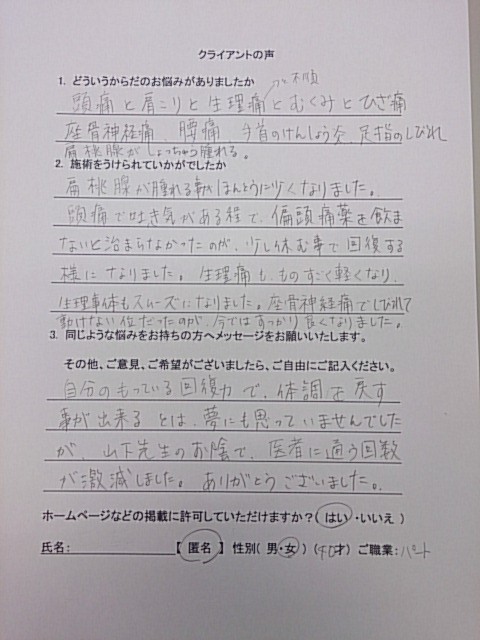 クライアントの声
1. どういうからだのお悩みがありましたか
〃 不順
頭痛と肩こりと生理痛とむくみとひざ痛
座骨神経痛、腰痛、手首のけんしょう炎、足指のしびれ
扁桃腺がしょっちゅう腫れる。
2. 施術をうけられていかがでしたか
扁桃腺が腫れる事がほんとうに少くなりました。
頭痛で吐き気がある程で、偏頭痛薬を飲ま
ないと治まらなかったのが、少し休む事で回復する
様になりました。生理痛も、ものすごく軽くなり、
生理事体もスムーズになりました。座骨神経痛でしびれて
動けない位だったのが、今ではすっかり良くなりました。
3. 同じような悩みをお持ちの方へメッセージをお願いいたします。
その他、ご意見、ご希望がございましたら、ご自由にご記入ください。
自分のもっている回復力で、体調を戻す
事が出来るとは、夢にも思っていませんでした
が、山下先生のお陰で、医者に通う回数
が激減しました。ありがとうございました。
ホームページなどの掲載に許可していただけますか？（はい・いいえ）
氏名：【 匿名 】 性別（ 男・女 ）（40才）ご職業：パート